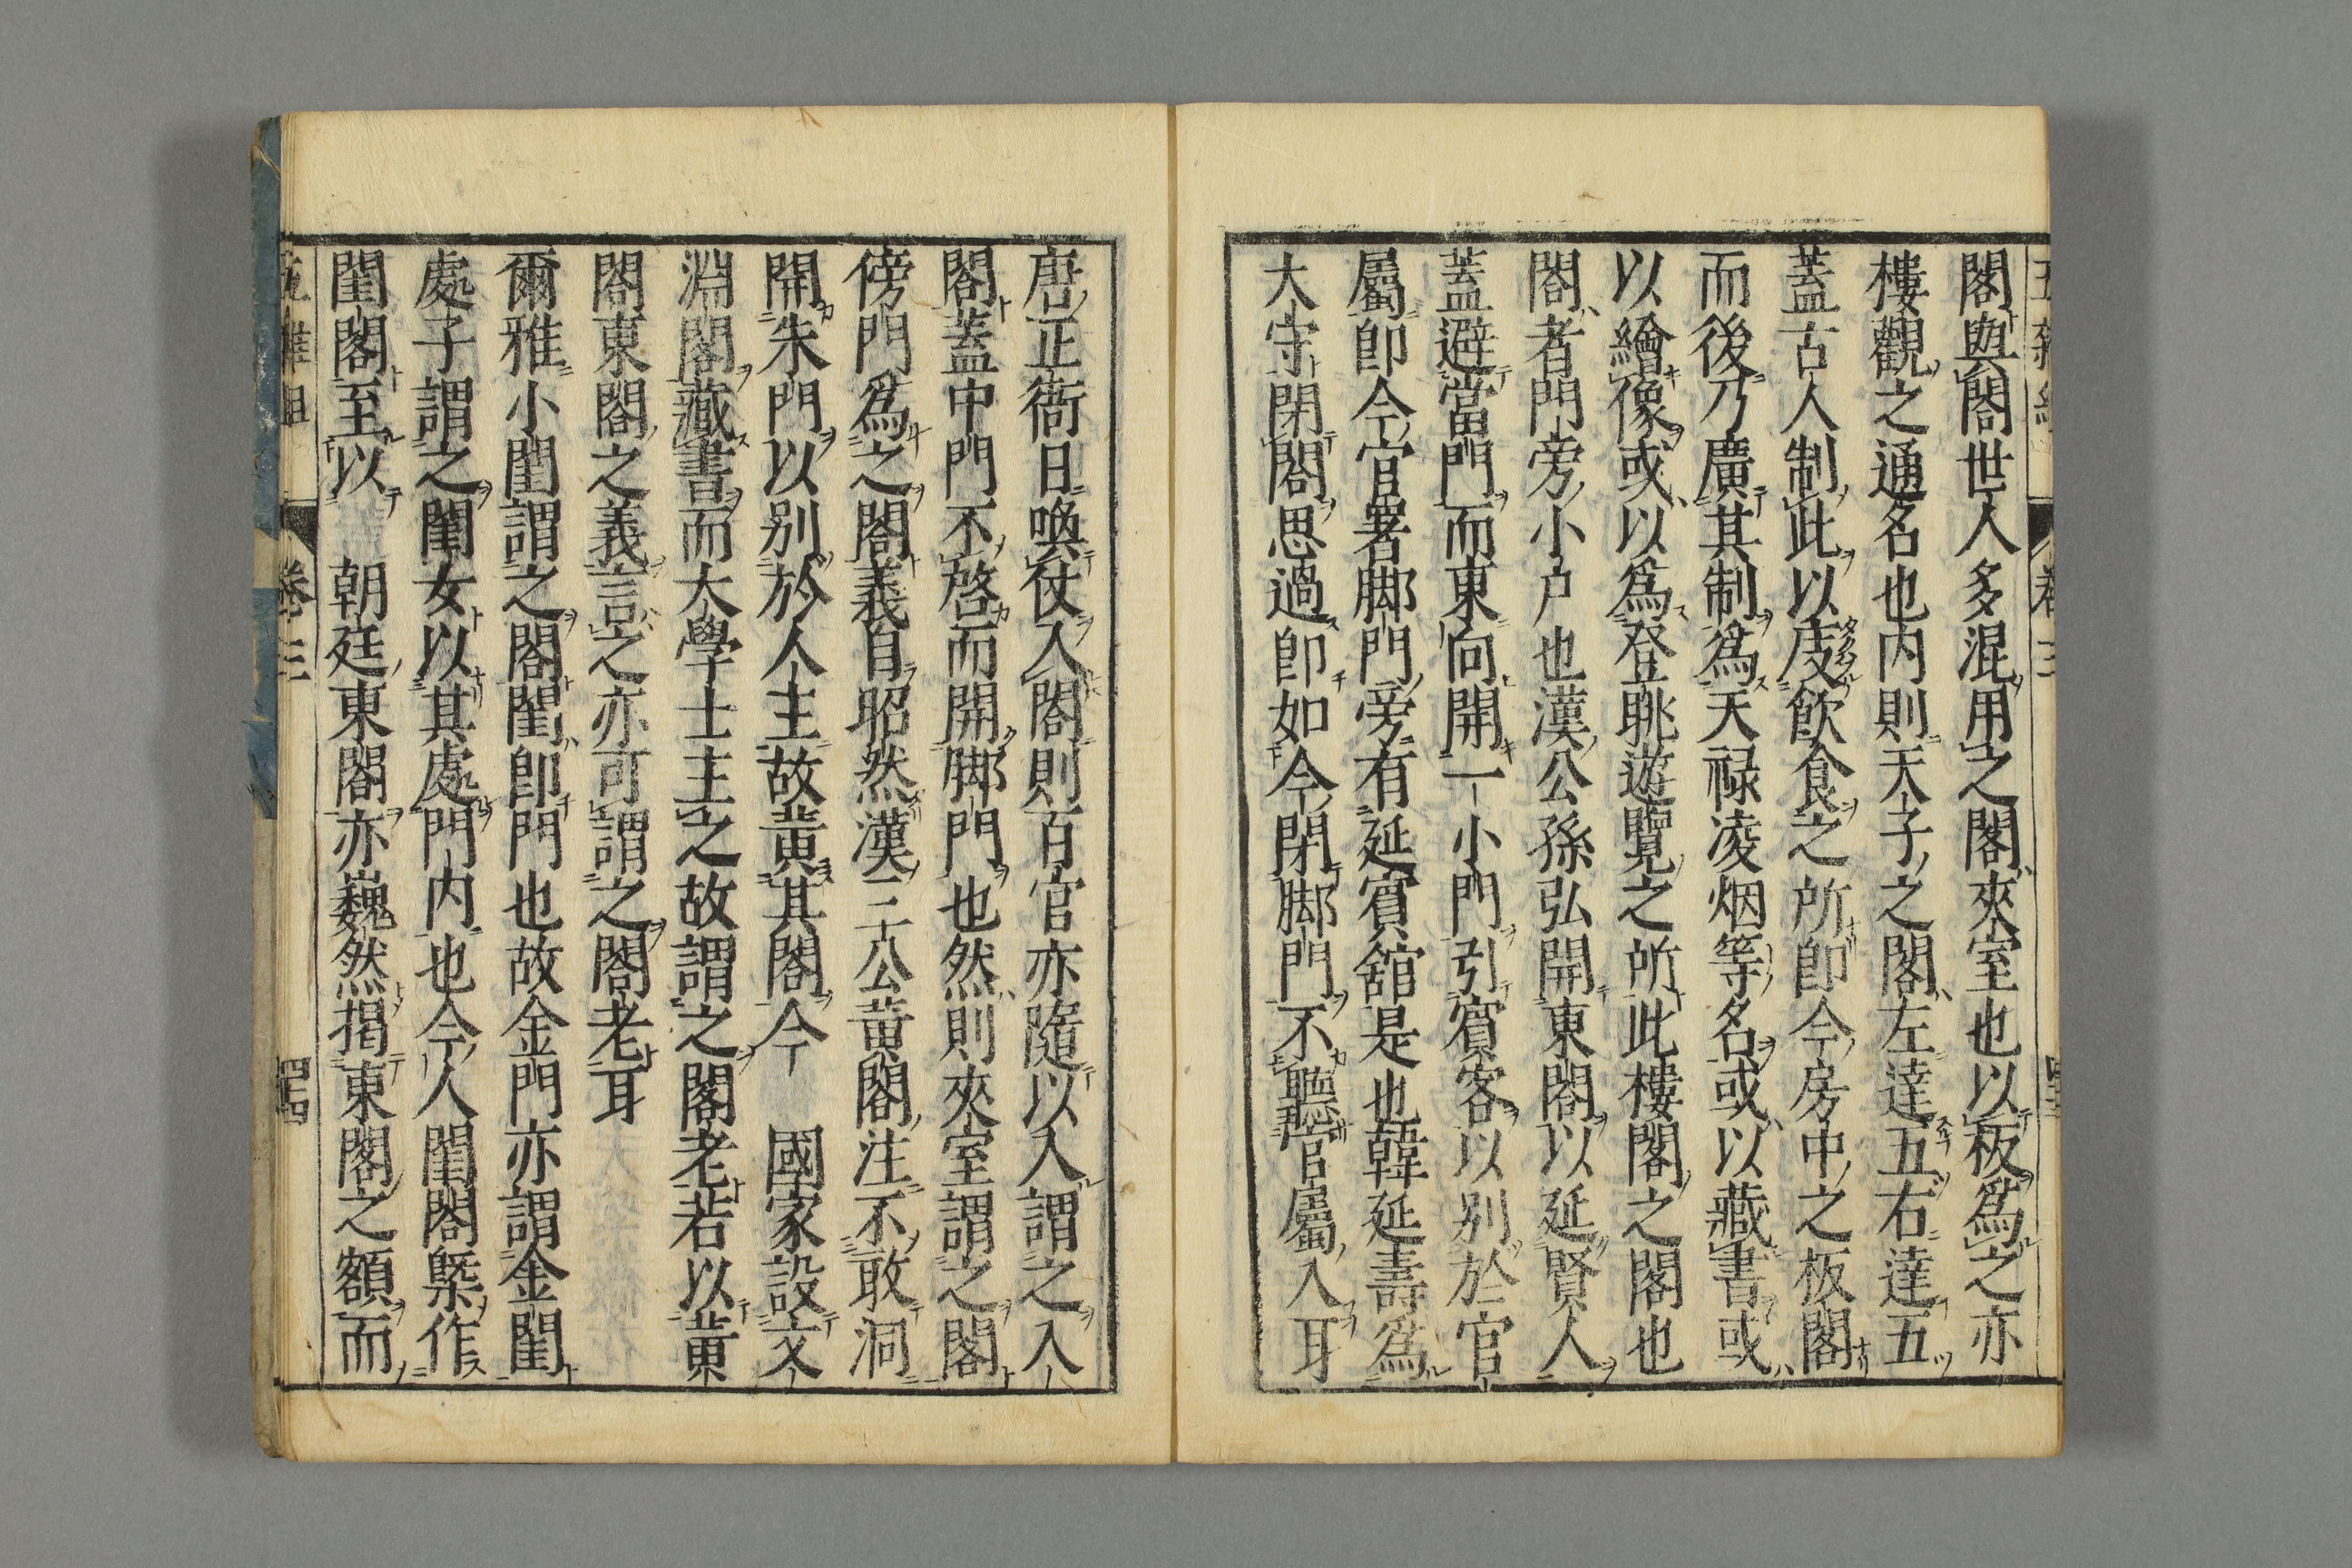 閤與閣世人多混用之閤夾室也以板爲之亦
樓觀之通名也内則天子之閣左達五右達五
蓋古人制此以庋飲食之所即今房中之板閣
而後乃廣其制爲天禄凌烟等名或以藏書或
以繪像或以爲登眺遊覽之所此樓閣之閣也
閤者門旁小户也漢公孫弘開東閤以延賢人
蓋避當門而東向開一小門引賓客以別於官
屬即今官署脚門旁有延賓舘是也韓延壽爲
大守閉閤思過即如今閉脚門不聽官屬入耳
唐正衙日喚仗入閤則百官亦隨以入謂之入
閤蓋中門不啓而開脚門也然則夾室謂之閤
傍門爲之閤義自昭然漢三公黄閤注不敢洞
開朱門以别於人主故黄其閤今 國家設文
淵閣藏書而大學士主之故謂之閣老若以黄
閤東閤之義言之亦可謂之閤老耳
爾雅小閨謂之閤閨即門也故金門亦謂金閨
處子謂之閨女以其處門内也今人閨閤槩作
閨閣至以 朝廷東閤亦巍然揭東閣之額而
卷三
四十四